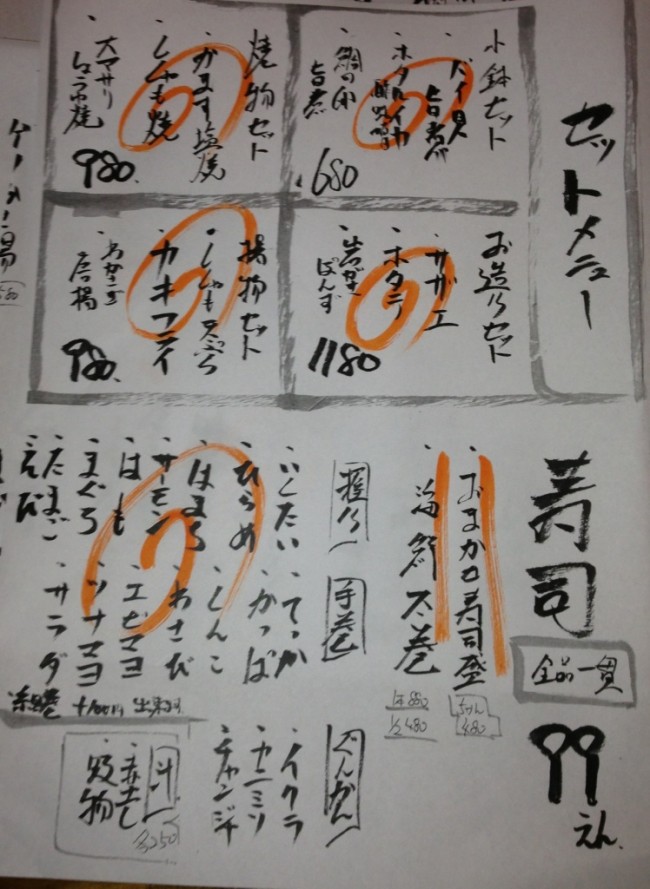 セットメニュー
小鉢セット
・バイ貝旨煮
・ホタルイカ
・鯛の卵旨煮
680
焼物セット
・かます塩焼
・ししゃも焼
980.
お造りセット
・サザエ
・ホタテ
・岩がきぽんず
1180
揚物セット
・ししゃも天ぷら
・カキフライ
980.
寿司
全品一貫
99えん.
・おまかせ寿司盛
5かん480
・海鮮太巻
1本880
1/2 480
握り
・いくたい
・ひらめ
・はまち
・サーモン
・まぐろ
・たまご
・えび
手巻
・てっか
・かっぱ
・しんこ
・わさび
・エビマヨ
・ツナマヨ
・サラダ
ぐんかん
・イクラ
・カニミソ
・チャンジャ
汁
・赤だし
・吸物
各250